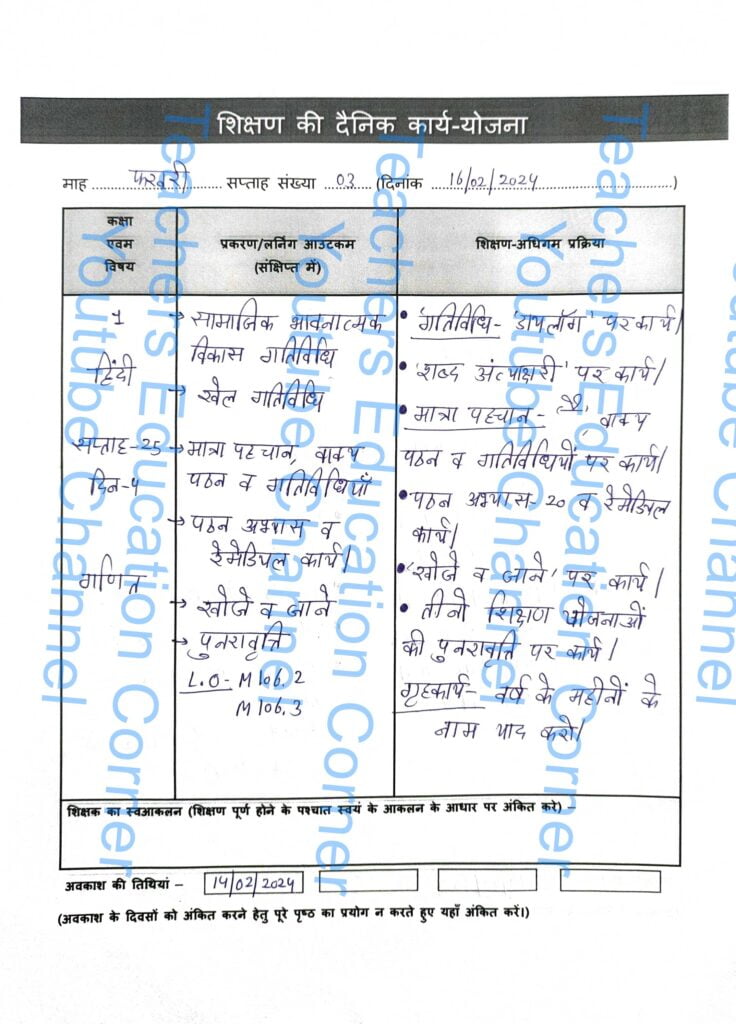 शिक्षण की दैनिक कार्य-योजना
माह फरवरी सप्ताह संख्या 03 (दिनांक 16/02/2024)
कक्षा
एवम
विषय
प्रकरण/लर्निंग आउटकम
(संक्षिप्त में)
शिक्षण-अधिगम प्रक्रिया
1
हिंदी
सप्ताह-25
दिन-4
गणित
→ सामाजिक भावनात्मक
विकास गतिविधि
→ खेल गतिविधि
→ मात्रा पहचान, वाक्य
पठन व गतिविधियाँ
→ पठन अभ्यास व
रेमेडियल कार्य।
→ खोजे व जाने
→ पुनरावृत्ति
L.O- M106.2
M106.3
• 'गतिविधि- 'डायलॉग' पर कार्य।
• 'शब्द अंत्याक्षरी' पर कार्य।
• मात्रा पहचान- वाक्य
पठन व गतिविधियों पर कार्य।
• पठन अभ्यास- 20 व रेमेडियल
कार्य।
• 'खोजे व जाने' पर कार्य।
• तीनो शिक्षण योजनाओं
की पुनरावृत्ति पर कार्य।
गृहकार्य- वर्ष के महीनों के
नाम याद करो।
शिक्षक का स्वआकलन (शिक्षण पूर्ण होने के पश्चात स्वयं के आकलन के आधार पर अंकित करे) –
अवकाश की तिथियां – 14/02/2024
(अवकाश के दिवसों को अंकित करने हेतु पूरे पृष्ठ का प्रयोग न करते हुए यहाँ अंकित करें।)
Teachers Education Corner
Youtube Channel
Teachers Education Corner
Youtube Channel
Teachers Education Corner
Youtube Channel